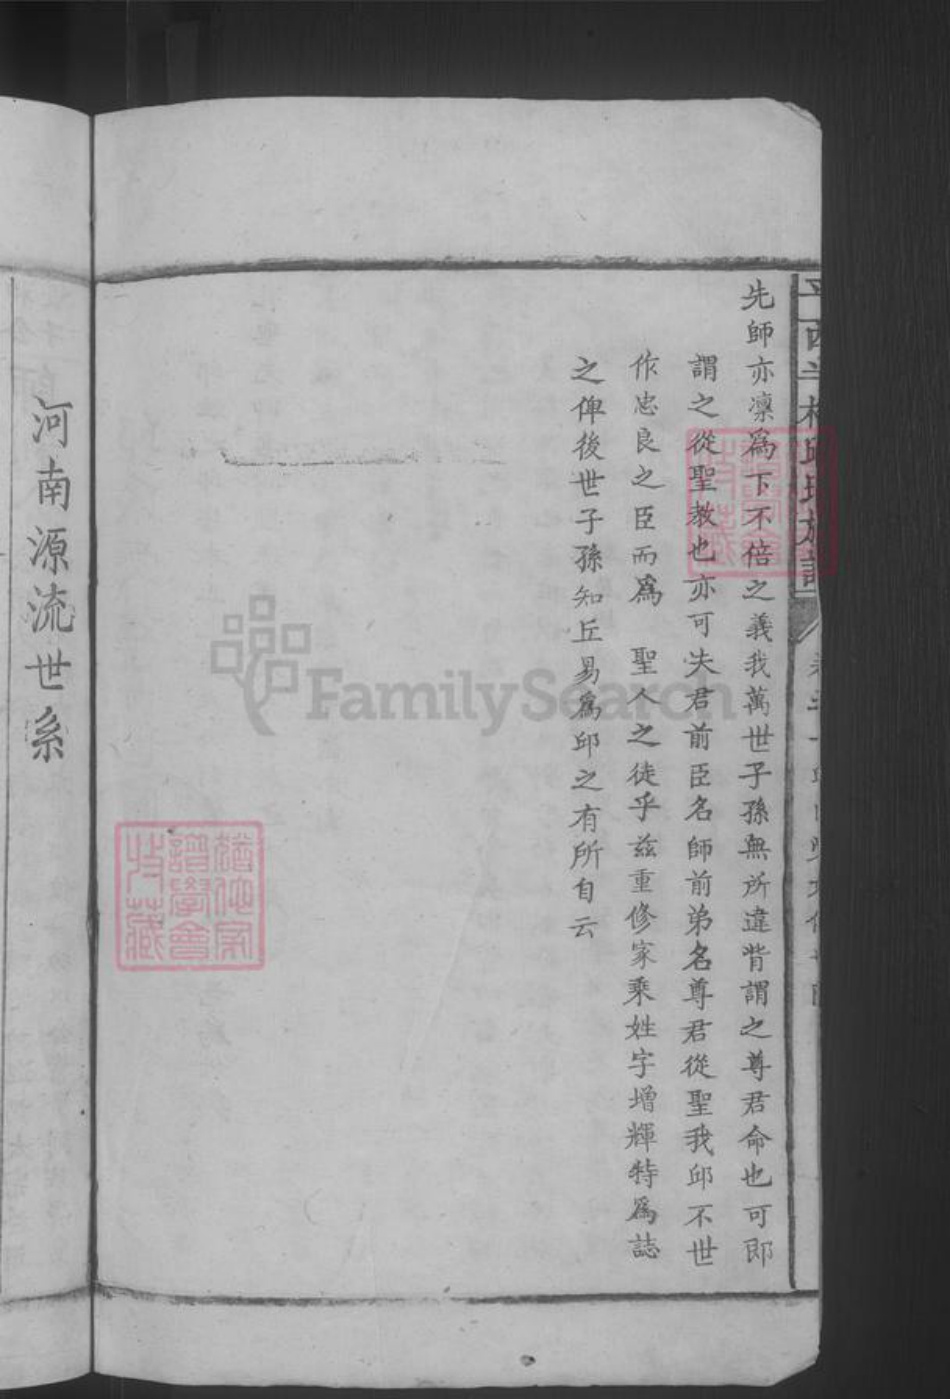 先師亦凜為下不倍之義我萬世子孫無所違背謂之尊君命也可即
謂之從聖教也亦可夫君前臣名師前弟名尊君從聖我邱不世
作忠良之臣而為 聖人之徒乎茲重修家乘姓字增輝特為誌
之俾後世子孫知丘易為邱之有所自云
河南源流世系
FamilySearch